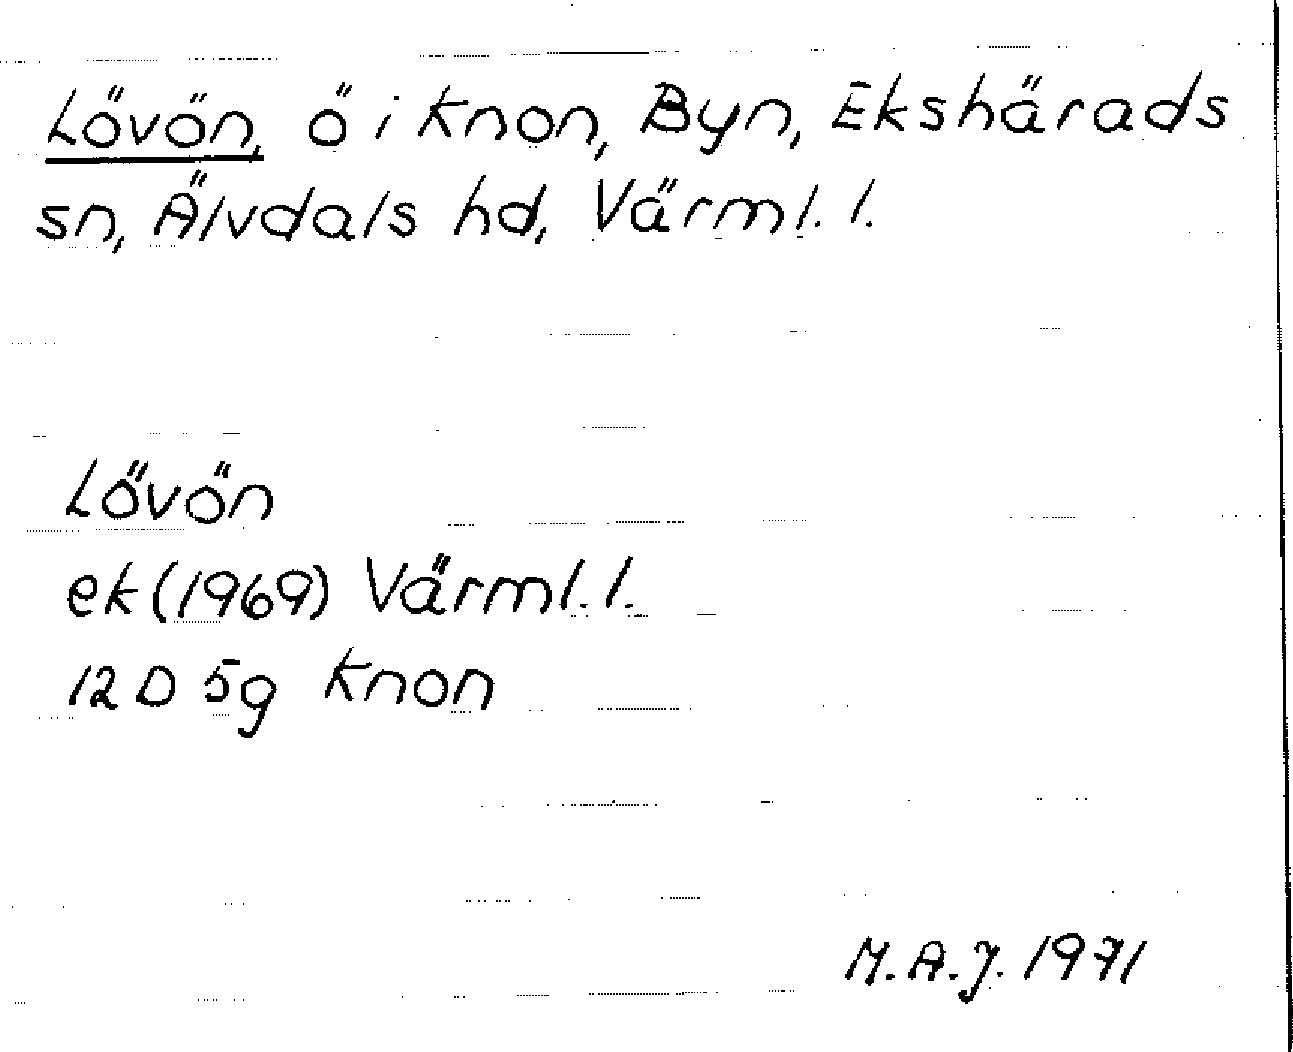 Lövön, ö i Knon, Byn, Ekshärads
sn, Älvdals hd, Värml. l.
Lövön
ek (1969) Värml. l.
12 D 5g Knon
M.A.J. 1971